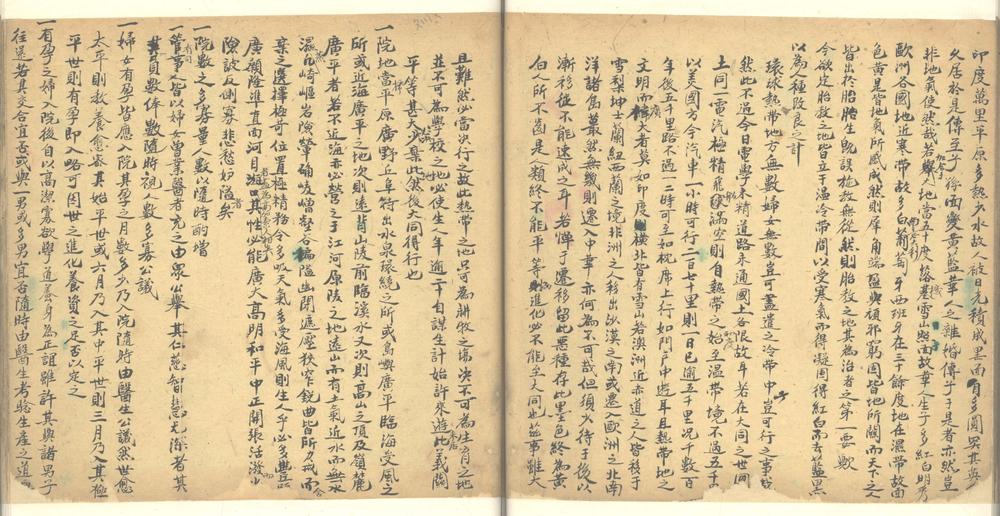 印度萬里平原多熱少水故人被日光積成黑面
久居於是傳至子孫面變黃藍華人之雜婚傳子于是者亦然豈
非地氣使然哉若
歐洲各國地近寒帶故多白葡萄牙西班牙在三十餘度地在濕帶故面
色黃是皆地氣所感成然則犀角端盈與頑邪窮困皆地所關而天下之人
皆出於胎胎生既誤施敎無從然則胎敎之地其為治者之第一要歟
今欲定胎敎之地皆立于溫冷帶間以受寒氣而得凝固得紅白而去藍黑
以為人種改良之計
環球熱帶地方無數婦女無數豈可盡遣之冷帶中此豈可行之事哉
然此不過今日電學未精道路未通國土各限故耳若在大同之世同
土同一電汽極精飛船滿空則自熱帶之始至濕帶境不過五千
以美國方今汽車一小時可行二百七十里則一日已逾五千里况千數百
年後五千里路不過一二小時可至如枕席上行如門戶中遊耳且熱帶之地
文明而廣大者莫如印度橫非北皆有雪山若澳洲近赤道之人皆移于
雪梨坤士蘭紐西蘭之境非洲之人移出沙漠之南或遷入歐洲之北南
洋諸島蕞然無幾則遷入中華亦何為不可哉但須少待于後以
漸移徙不能速成之耳若憚于遷移留此惡種存此黑色終為黃
白人所不齒是人類終不能平等則進化必不能至大同也茲事雖大
且難然必當決行之故出熱帶之地只可為耕牧之場決不可為生育之地
並不可為學校之地必使生人年過二十自謀生計始許來遊此義關
平等甚大決棄此然後大同得行也
一院地當平原廣野丘阜特出水泉環繞之所或島嶼廣平臨海受風之
所或近海廣平之地次則遠背山陵前臨溪水又次則高山之頂及嶺麓
廣平者若不近海亦必營之于江河原陵之地遠山而有土氣近水而無水
濕凡崎嶇岩險犖确崚嶒壑谷褊隘幽閉遮壓秩窄銳曲皆所力戒而
棄之選擇極奇位置極精務令多吸天氣多受海風則生人乎必多豐
廣顙隆準直面河目其性必能廣大高明和平中正開張活潑少
險詖反側褊悲愁妒隘矣
一院數之多寡量人數以隨時酌增
一管事人皆以婦女曾業醫者充之由眾公舉其仁慈智慧尤深者其
員數係數隨時視人數多寡公議
一婦女有孕皆應入院其孕之月數多少乃入院隨時由醫生公議然世愈
太平則敎養愈密其始平世或六月乃入其中平世則三月乃入其極
平世則有孕即入略可因世之進化養資之足否以定之
一有孕之婦入院後自以高潔寡欲學道養身為正誼雖許其與諸男子
往還若其交合宜否或與一男或多男宜否隨時由醫生考驗生產之道